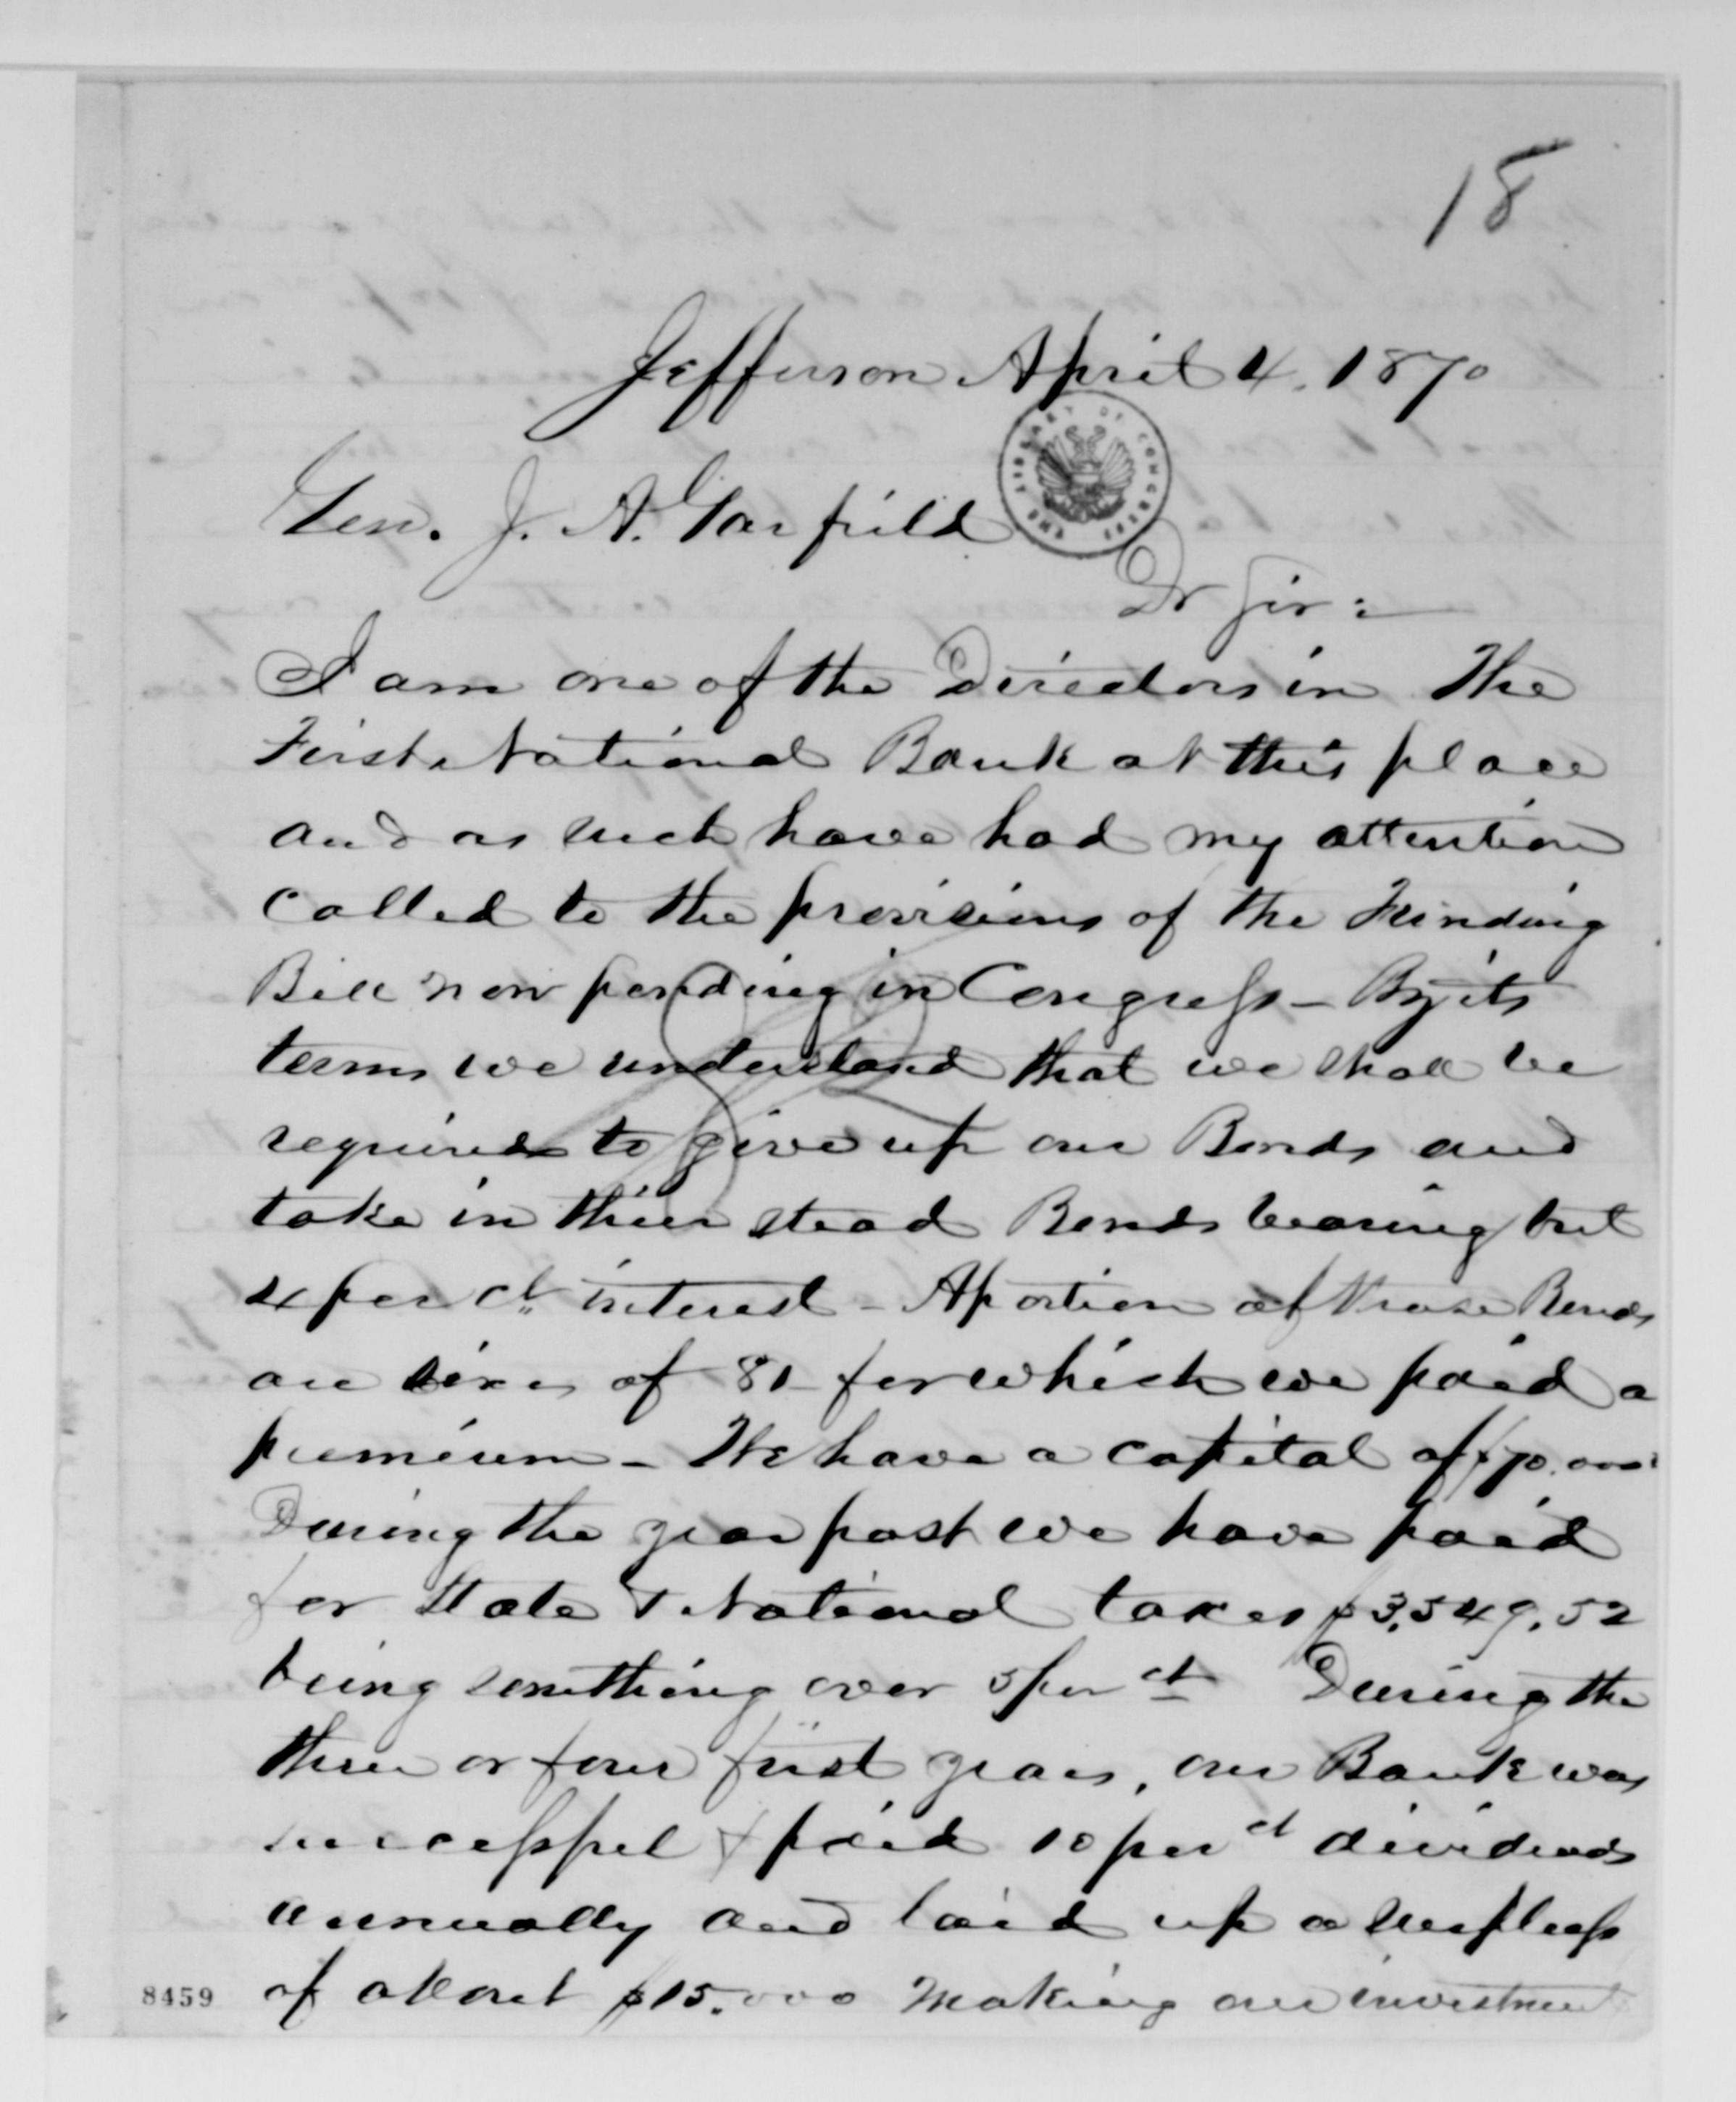 18
Jefferson April 4. 1870
THE LIBRARY OF CONGRESS
Gen. J. A. Garfield
Dr Sir:
I am one of the Directors in The
First National Bank at this place
and as such have had my attention
called to the provisions of the Funding
Bill now pending in Congress - By its
terms we understand that we shall be
required to give up our Bonds and
take in thier stead Bonds bearing but
4 per ct. interest - A portion of these Bonds
are sixes of 81 for which we paid a
premium - We have a capital of $70.000
During the year past we have paid
for State & National taxes $3,549.52
being something over 5 per ct During the
three or four first years, our Bank was
successful & paid 10 per ct dividends
annually and laid up a surpluss
of about $15.000 making our investment
8459